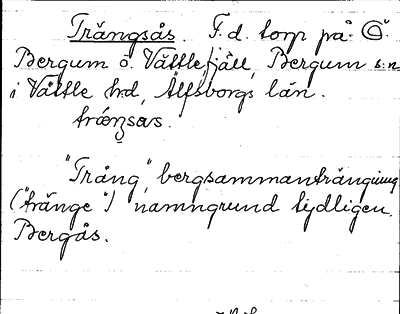 Trängsås. F.d. torp på Ö.
Bergum o. Vättlefjäll, Bergum s:n
i Vättle hd, Älfsborgs län.
"Trång", bergsammanträngning
("tränge") namngrund tydligen.
Bergås.